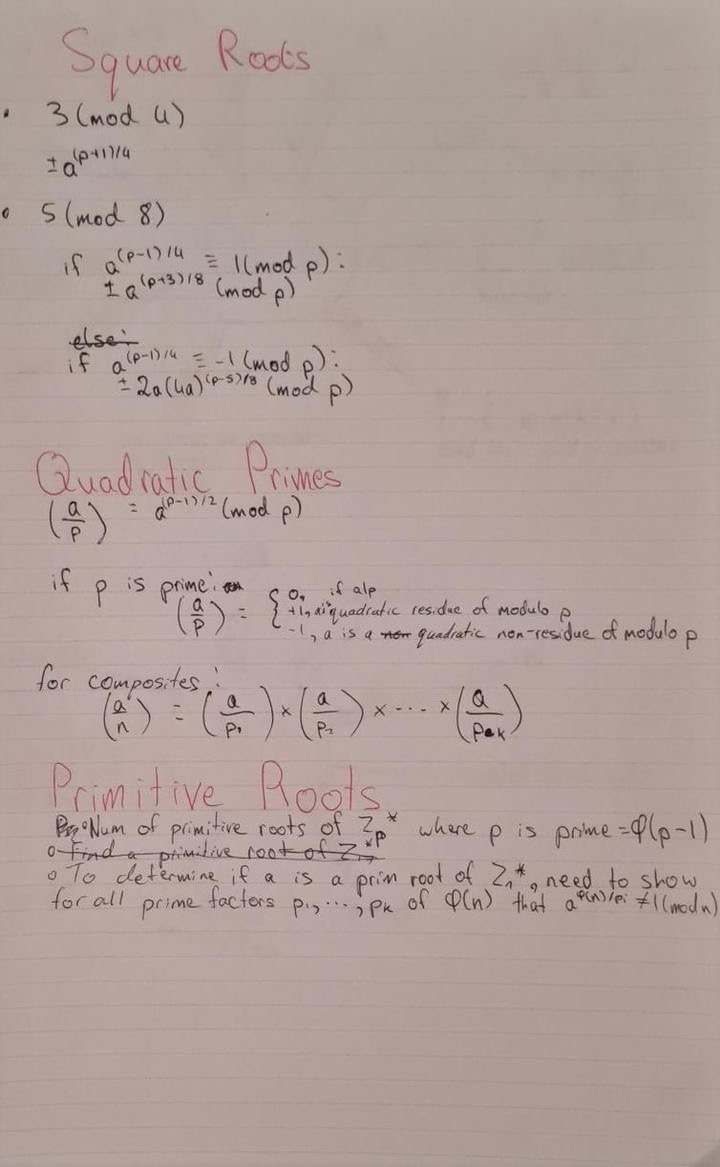 Square Roots
• 3 (mod 4)
±a^(p+1)/4
• 5 (mod 8)
if a^(p-1)/4 ≡ 1 (mod p):
± a^(p+3)/8 (mod p)
else:
if a^(p-1)/4 ≡ -1 (mod p):
± 2a(4a)^(p-5)/8 (mod p)
Quadratic Primes
(a/p) = a^(p-1)/2 (mod p)
if p is prime:
(a/p) = { 0, if a|p
+1, a is quadratic residue of modulo p
-1, a is a non quadratic non-residue of modulo p
for composites:
(a/n) = (a/p₁) × (a/p₂) × ... × (a/pₖ)
Primitive Roots
• Num of primitive roots of Zp* where p is prime = φ(p-1)
• Find a primitive root of Zp*
• To determine if a is a prim root of Zn*, need to show
for all prime factors p₁, ..., pₖ of φ(n) that a^φ(n)/pᵢ ≠ 1 (mod n)